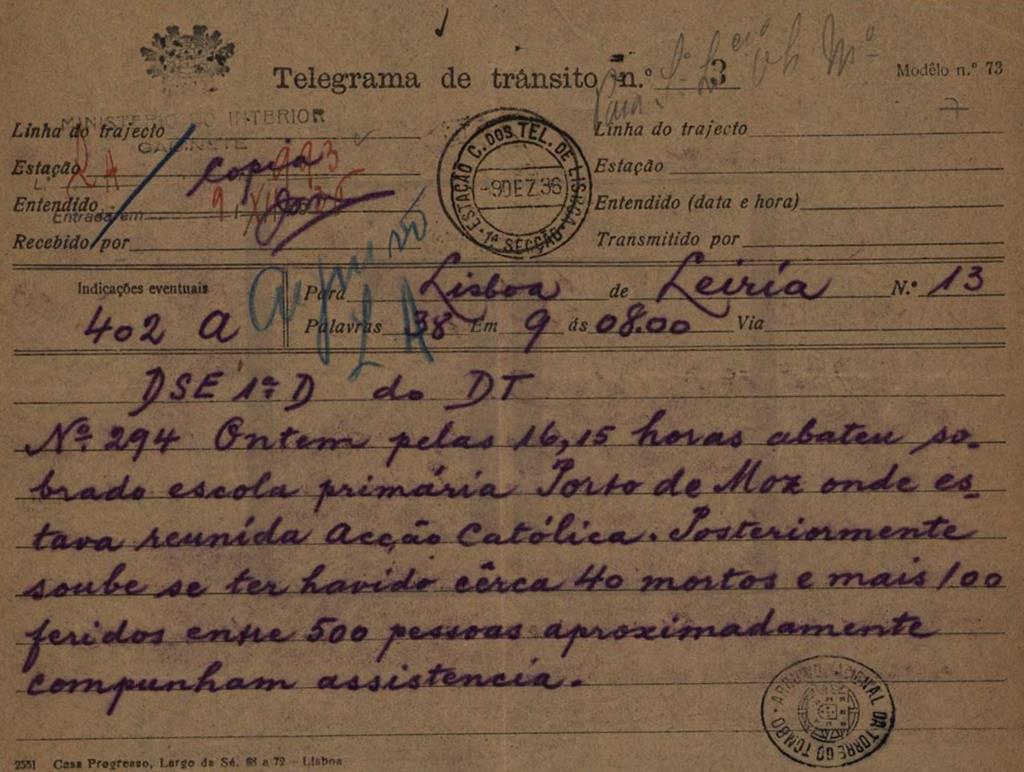 Telegrama de trânsito n.º 3
Modêlo n.º 73
MINISTERIO DO INTERIOR
GABINETE
Linha do trajecto
Estação
Copia
Entendido
Entrada em
Recebido por
ESTAÇÃO C. DOS TEL. DE LISBOA
-9DEZ.36
1ª SECÇÃO
Linha do trajecto
Estação
Entendido (data e hora)
Transmitido por
Indicações eventuais
402 A
Arquivo
LA
Para Lisboa de Leiría N.º 13
Palavras 38 Em 9 ás 08.00 Via
DSE 1ª D do DT
Nº 294 Ontem pelas 16,15 horas abateu so-
brado escola primária Porto de Moz onde es-
tava reunída Acção Católica. Posteriormente
soube se ter havido cêrca 40 mortos e mais 100
feridos entre 500 pessoas aproximadamente
compunham assistencia.
ARQUIVO NACIONAL DA TORRE DO TOMBO
2551 Casa Progresso, Largo da Sé, 68 a 72 - Lisboa